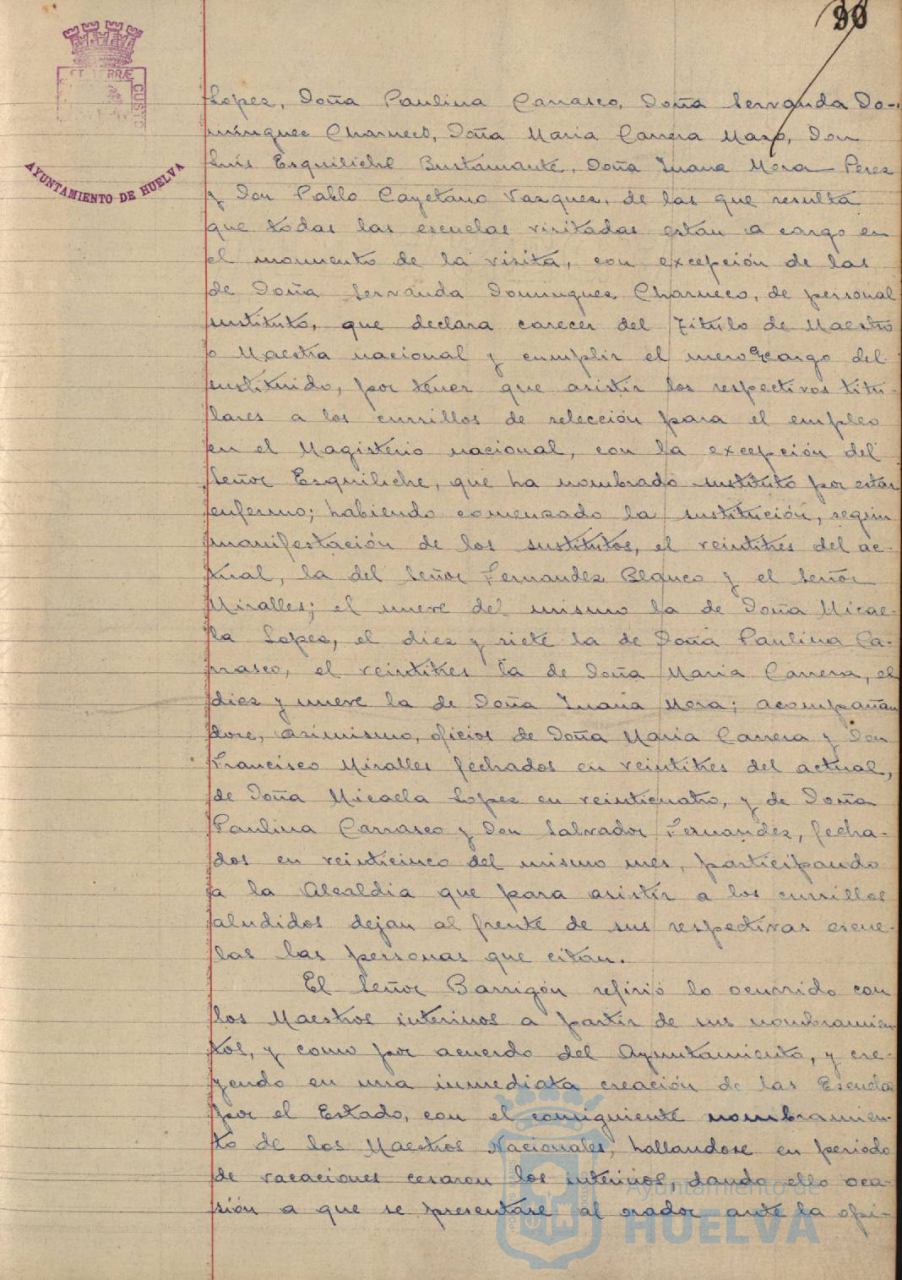 90
AYUNTAMIENTO DE HUELVA
Lopez, Doña Paulina Carrasco, Doña Servanda Do-
mínguez Charneco, Doña Maria Carrera Mazo, Don
Luis Esquiliche Bustamante, Doña Juana Mora Perez
y Don Pablo Cayetano Vazquez, de las que resulta
que todas las escuelas visitadas están a cargo en
el momento de la visita, con excepción de las
de Doña Servanda Dominguez Charneco, de personal
sustituto, que declara carecer del Título de Maestro
o Maestra nacional y cumplir el mero encargo del
sustituido, por tener que asistir los respectivos titu-
lares a los cursillos de selección para el empleo
en el Magisterio nacional, con la excepción del
Señor Esquiliche, que ha nombrado sustituto por estar
enfermo; habiendo comenzado la sustitución, según
manifestación de los sustitutos, el veintitres del ac-
tual, la del Señor Fernandez Blanco y el Señor
Miralles; el nueve del mismo la de Doña Micae-
la Lopez, el diez y siete la de Doña Paulina Ca-
rrasco, el veintitres la de Doña Maria Carrera, el
diez y nueve la de Doña Juana Mora; acompañan
dose, asimismo, oficios de Doña Maria Carrera y Don
Francisco Miralles fechados en veintitres del actual,
de Doña Micaela Lopez en veinticuatro, y de Doña
Paulina Carrasco y Don Salvador Fernandez, fecha-
dos en veinticinco del mismo mes, participando
a la Alcaldia que para asistir a los cursillos
aludidos dejan al frente de sus respectivas escue-
las las personas que citan.
El Señor Barrigón refirió lo ocurrido con
los Maestros interinos a partir de sus nombramien-
tos, y como por acuerdo del Ayuntamiento, y cre-
yendo en una inmediata creación de las Escuelas
por el Estado, con el consiguiente nombramien-
to de los Maestros Nacionales, hallandose en periodo
de vacaciones cesaron los interinos, dando ello oca-
sión a que se presentase al orador ante la opi-
Ayuntamiento de
HUELVA